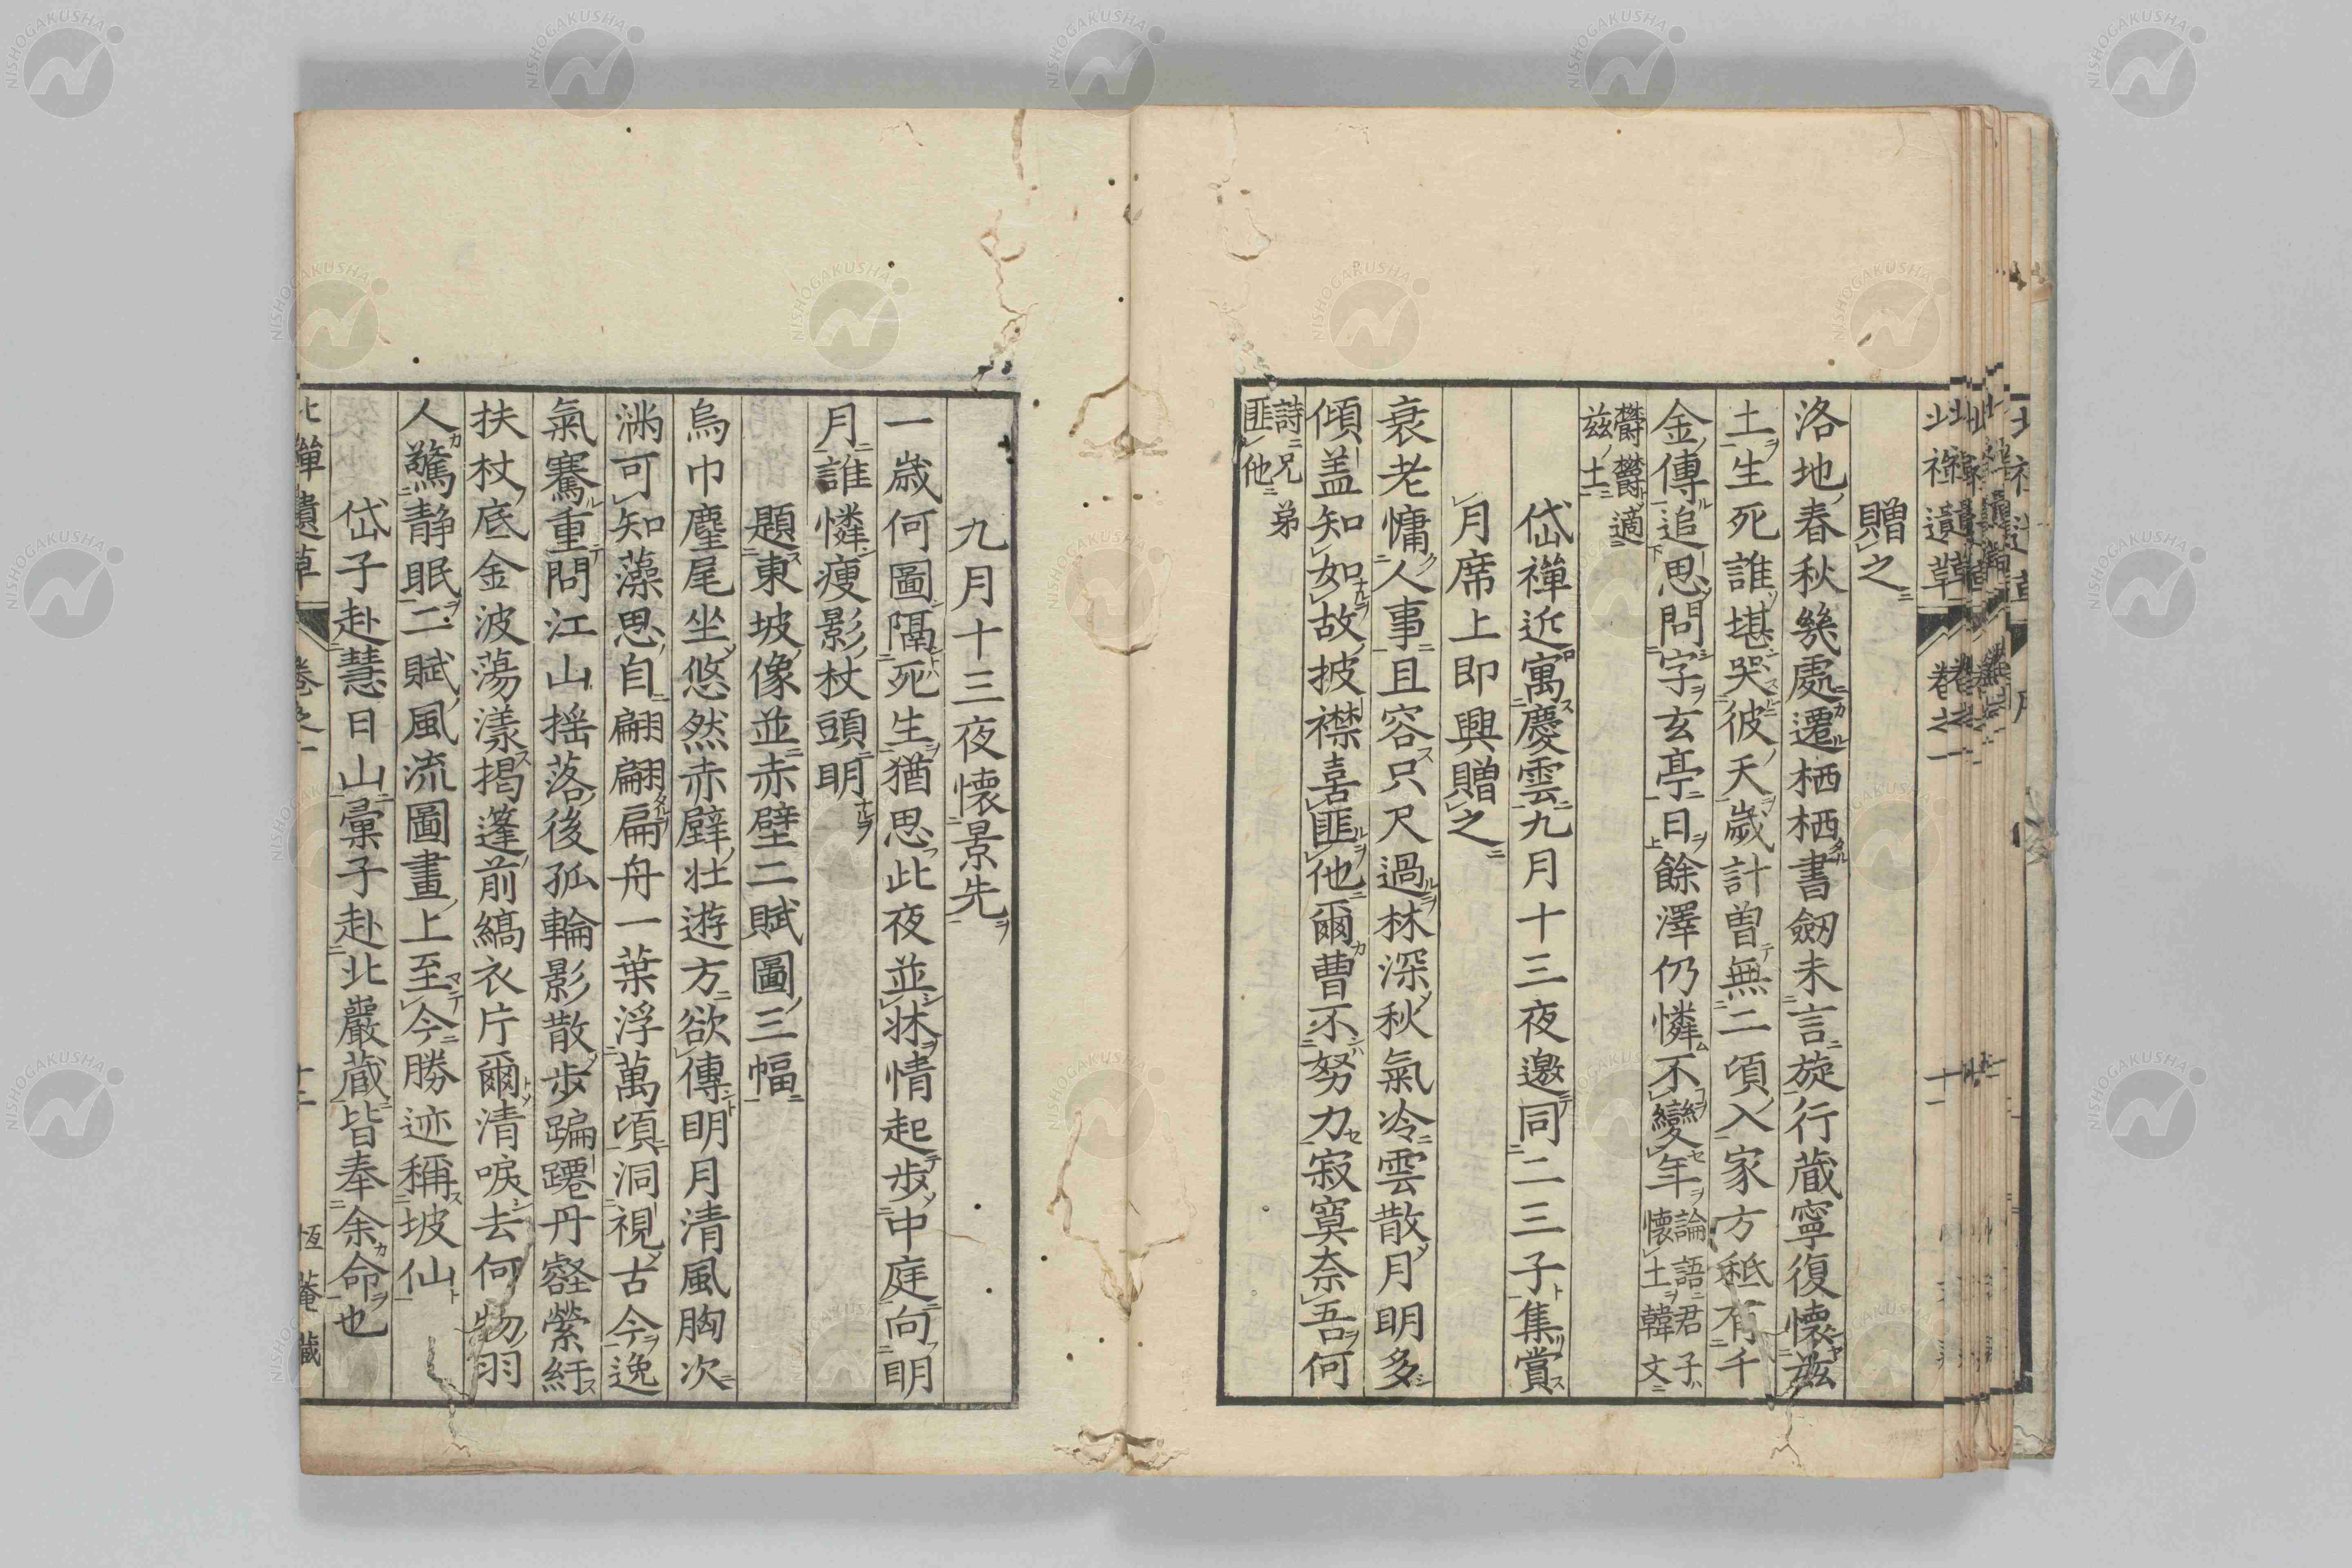 贈之
洛地春秋幾處遷栖栖書劔未言旋行蔵寧復懷兹
土生死誰堪哭彼天歳計曽無二頃入家方秪有千
金傳追思問字玄亭日餘澤仍憐不變年論語君子懷土韓文
欝欝適兹土
岱禪近寓慶雲九月十三夜邀同二三子集賞
月席上即興贈之
衰老慵人事且容只尺過林深秋氣冷雲散月明多
傾盖知如故披襟喜匪他爾曹不努力寂寞奈吾何
詩兄弟匪他
九月十三夜懷景先
一歳何圖隔死生猶思此夜並牀情起歩中庭向明
月誰憐痩影杖頭明
題東坡像並赤壁二賦圖三幅
烏巾麈尾坐悠然赤壁壮遊方欲傳明月清風胸次
滿可知藻思自翩翩扁舟一葉浮萬頃洞視古今逸
氣騫重問江山揺落後孤輪影散歩蹁躚丹壑縈紆
扶杖底金波蕩漾揭篷前縞衣片爾清唳去何物羽
人驚静眠二賦風流圖畫上至今勝迹稱坡仙
岱子赴慧日山彙子赴北巖蔵皆奉余命也
北禪遺草 卷之一 十二 恆菴藏